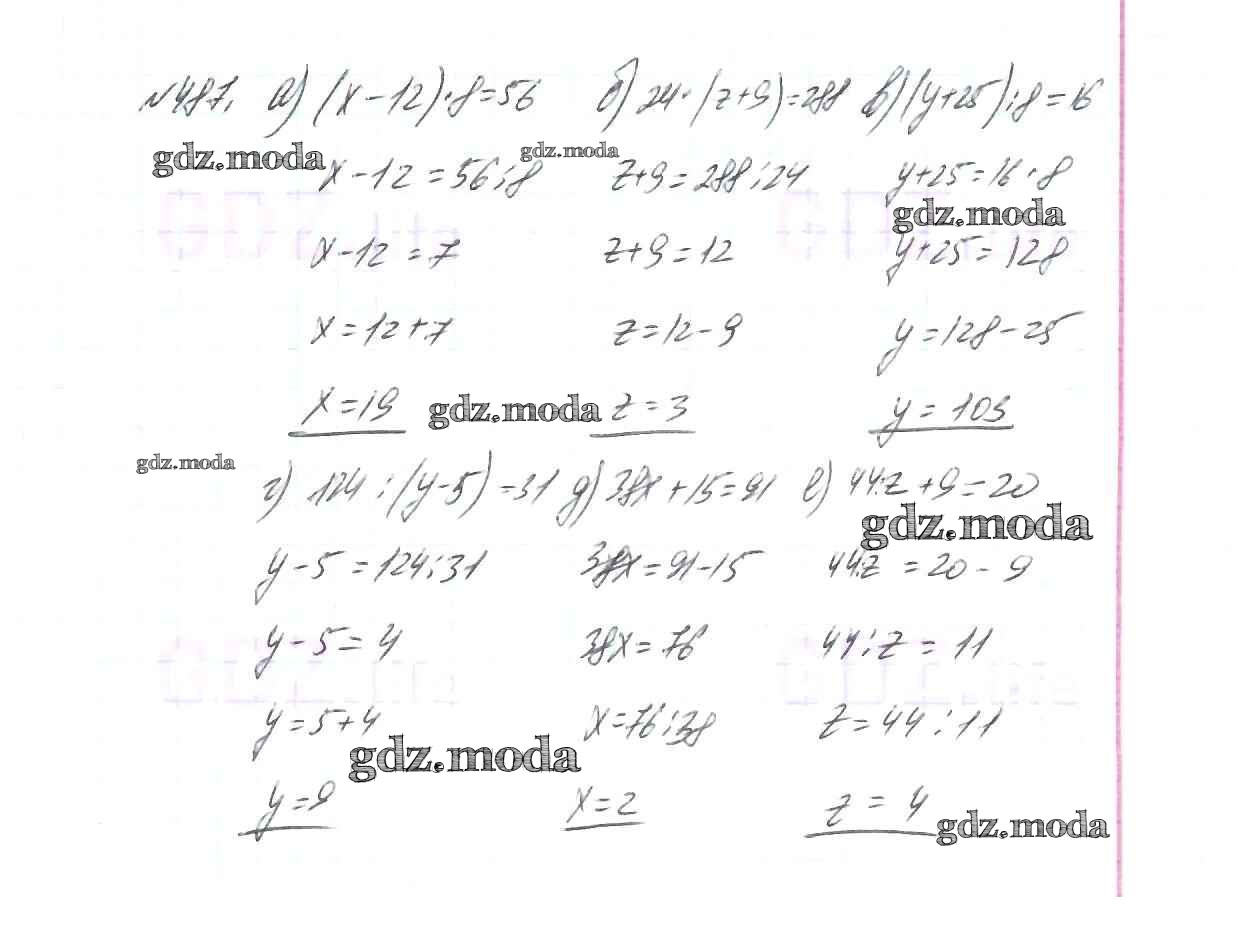 №487. а) (x-12)·8=56 б) 24·(z+9)=288 в) (y+25):8=16
gdz.moda gdz.moda
x-12=56:8 z+9=288:24 y+25=16·8
gdz.moda
x-12=7 z+9=12 y+25=128
x=12+7 z=12-9 y=128-25
x=19 gdz.moda z=3 y=103
gdz.moda
г) 124:(y-5)=31 д) 38x+15=91 е) 44:z+9=20
gdz.moda
y-5=124:31 38x=91-15 44:z=20-9
y-5=4 38x=76 44:z=11
y=5+4 x=76:38 z=44:11
gdz.moda
y=9 x=2 z=4
gdz.moda